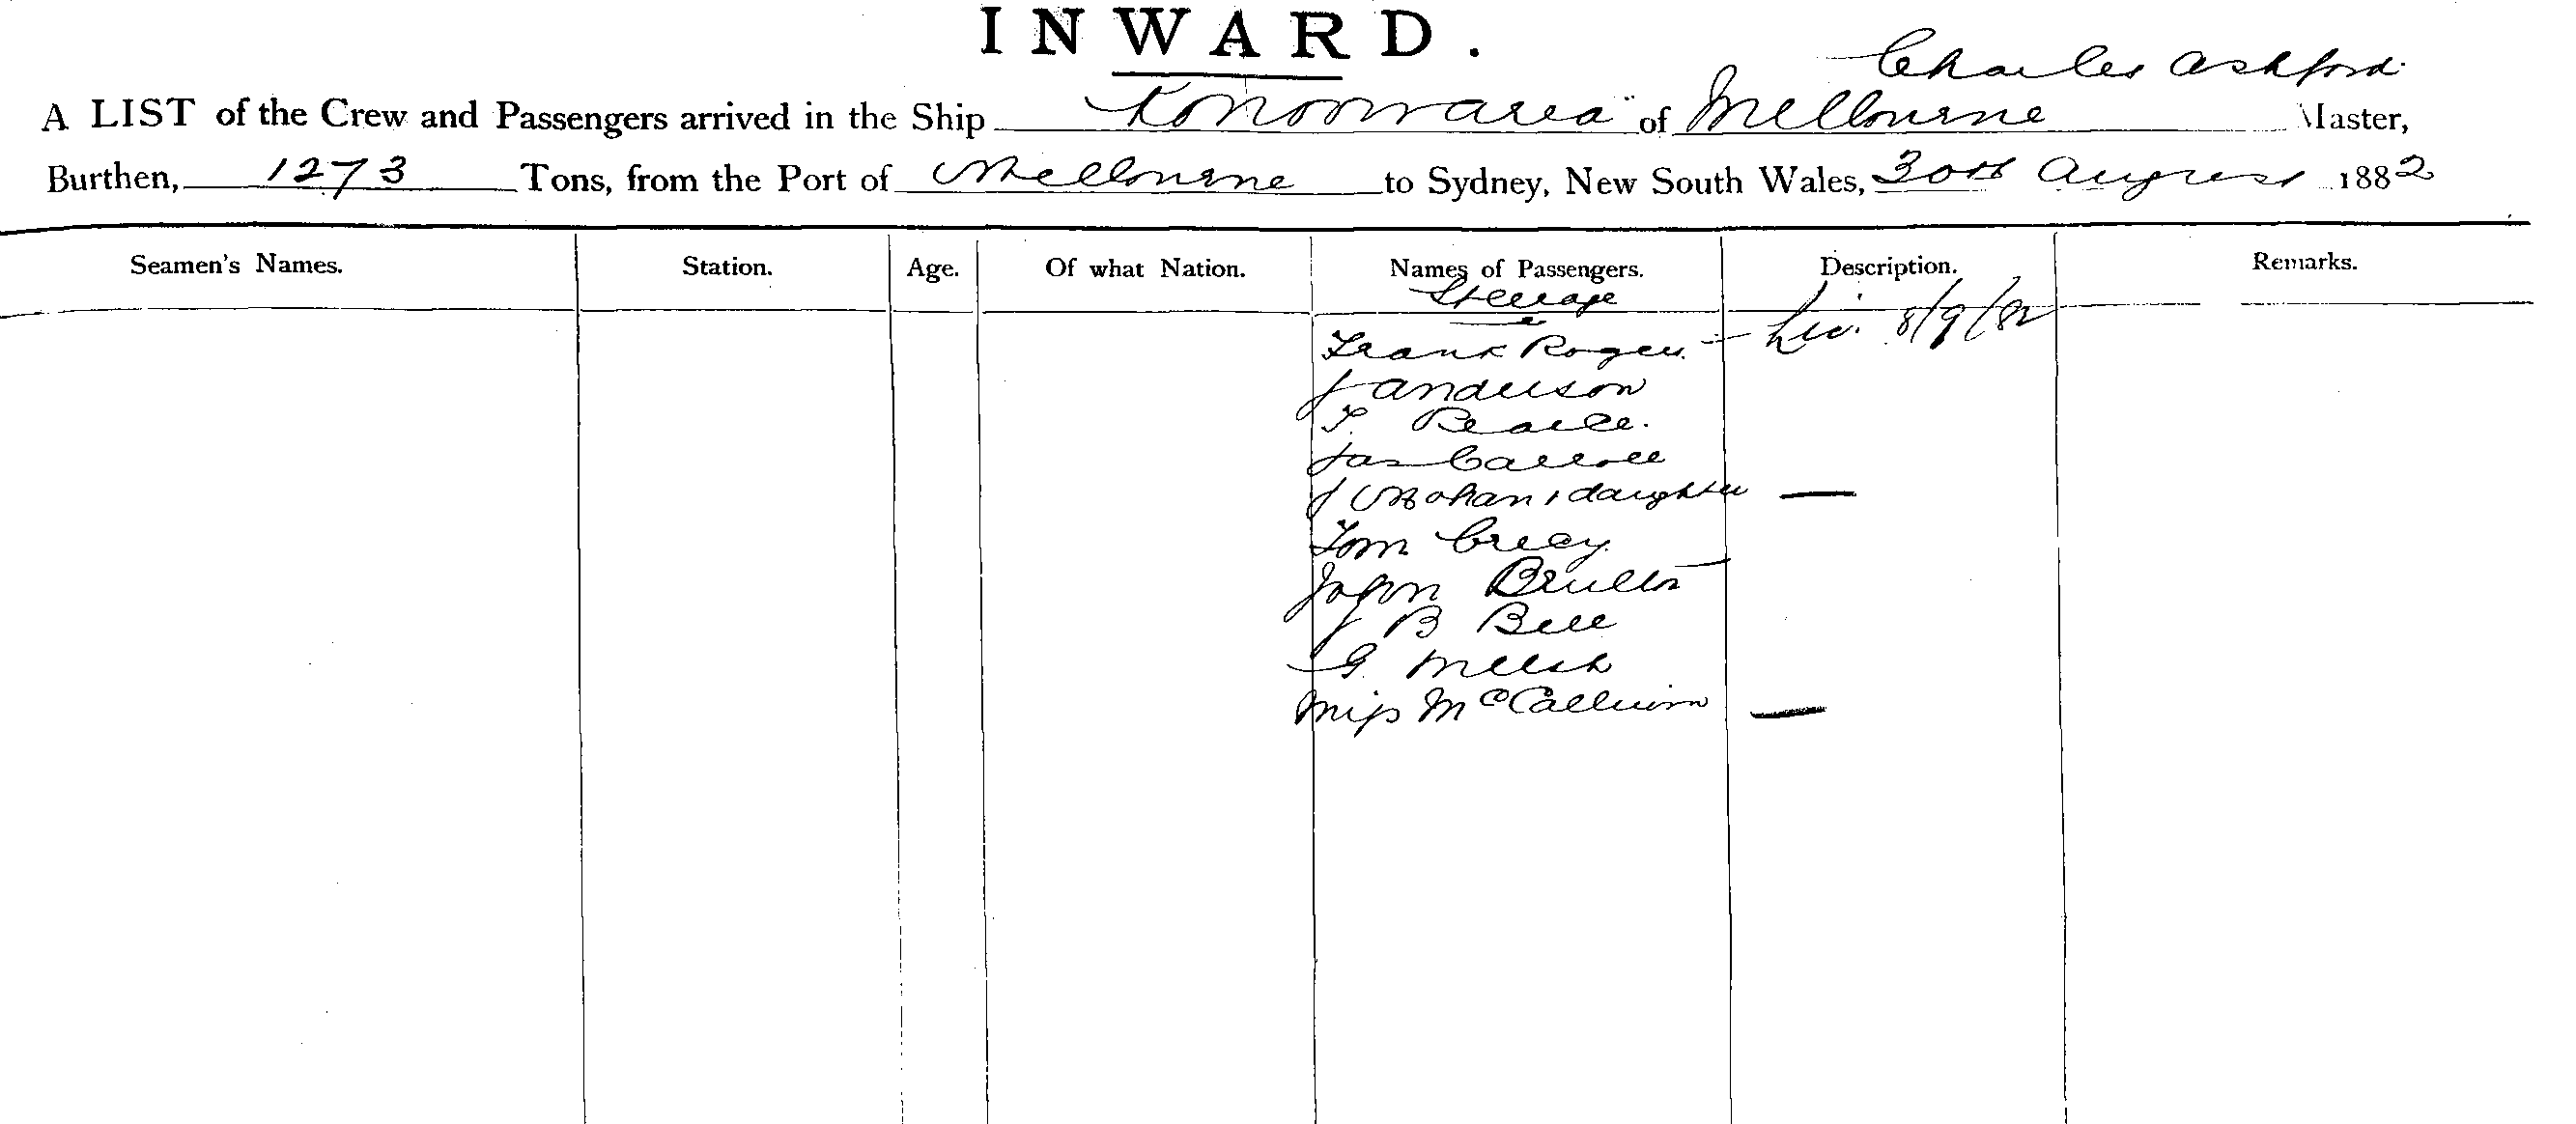 INWARD.
Charles Ashford.
A LIST of the Crew and Passengers arrived in the Ship Konoowarra of Melbourne Master,
Burthen, 1273 Tons, from the Port of Melbourne to Sydney, New South Wales, 30th August 1882
Seamen's Names. Station. Age. Of what Nation. Names of Passengers. Description. Remarks.
Steerage
Frank Rogers 8/9/82
J Anderson
T. Pearce.
Jas Carroll
J Mohan & daughter —
Tom Creey
John
J B Bell
G
Miss McCallum —